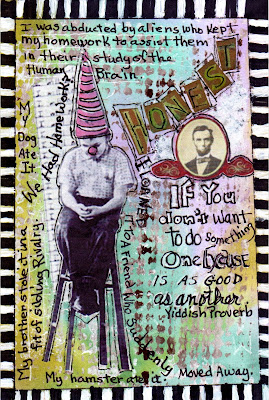 I was abducted by aliens who kept
my homework to assist them
in their study of the
Human Brain.
HONEST
My Dog Ate It.
We Had Homework?
I Loaned it to A Friend Who Suddenly Moved Away.
My brother stole it in a
fit of sibling Rivalry.
My hamster ate it.
IF You
don't want
to do something
One Excuse
IS AS GOOD
as another.
Yiddish Proverb